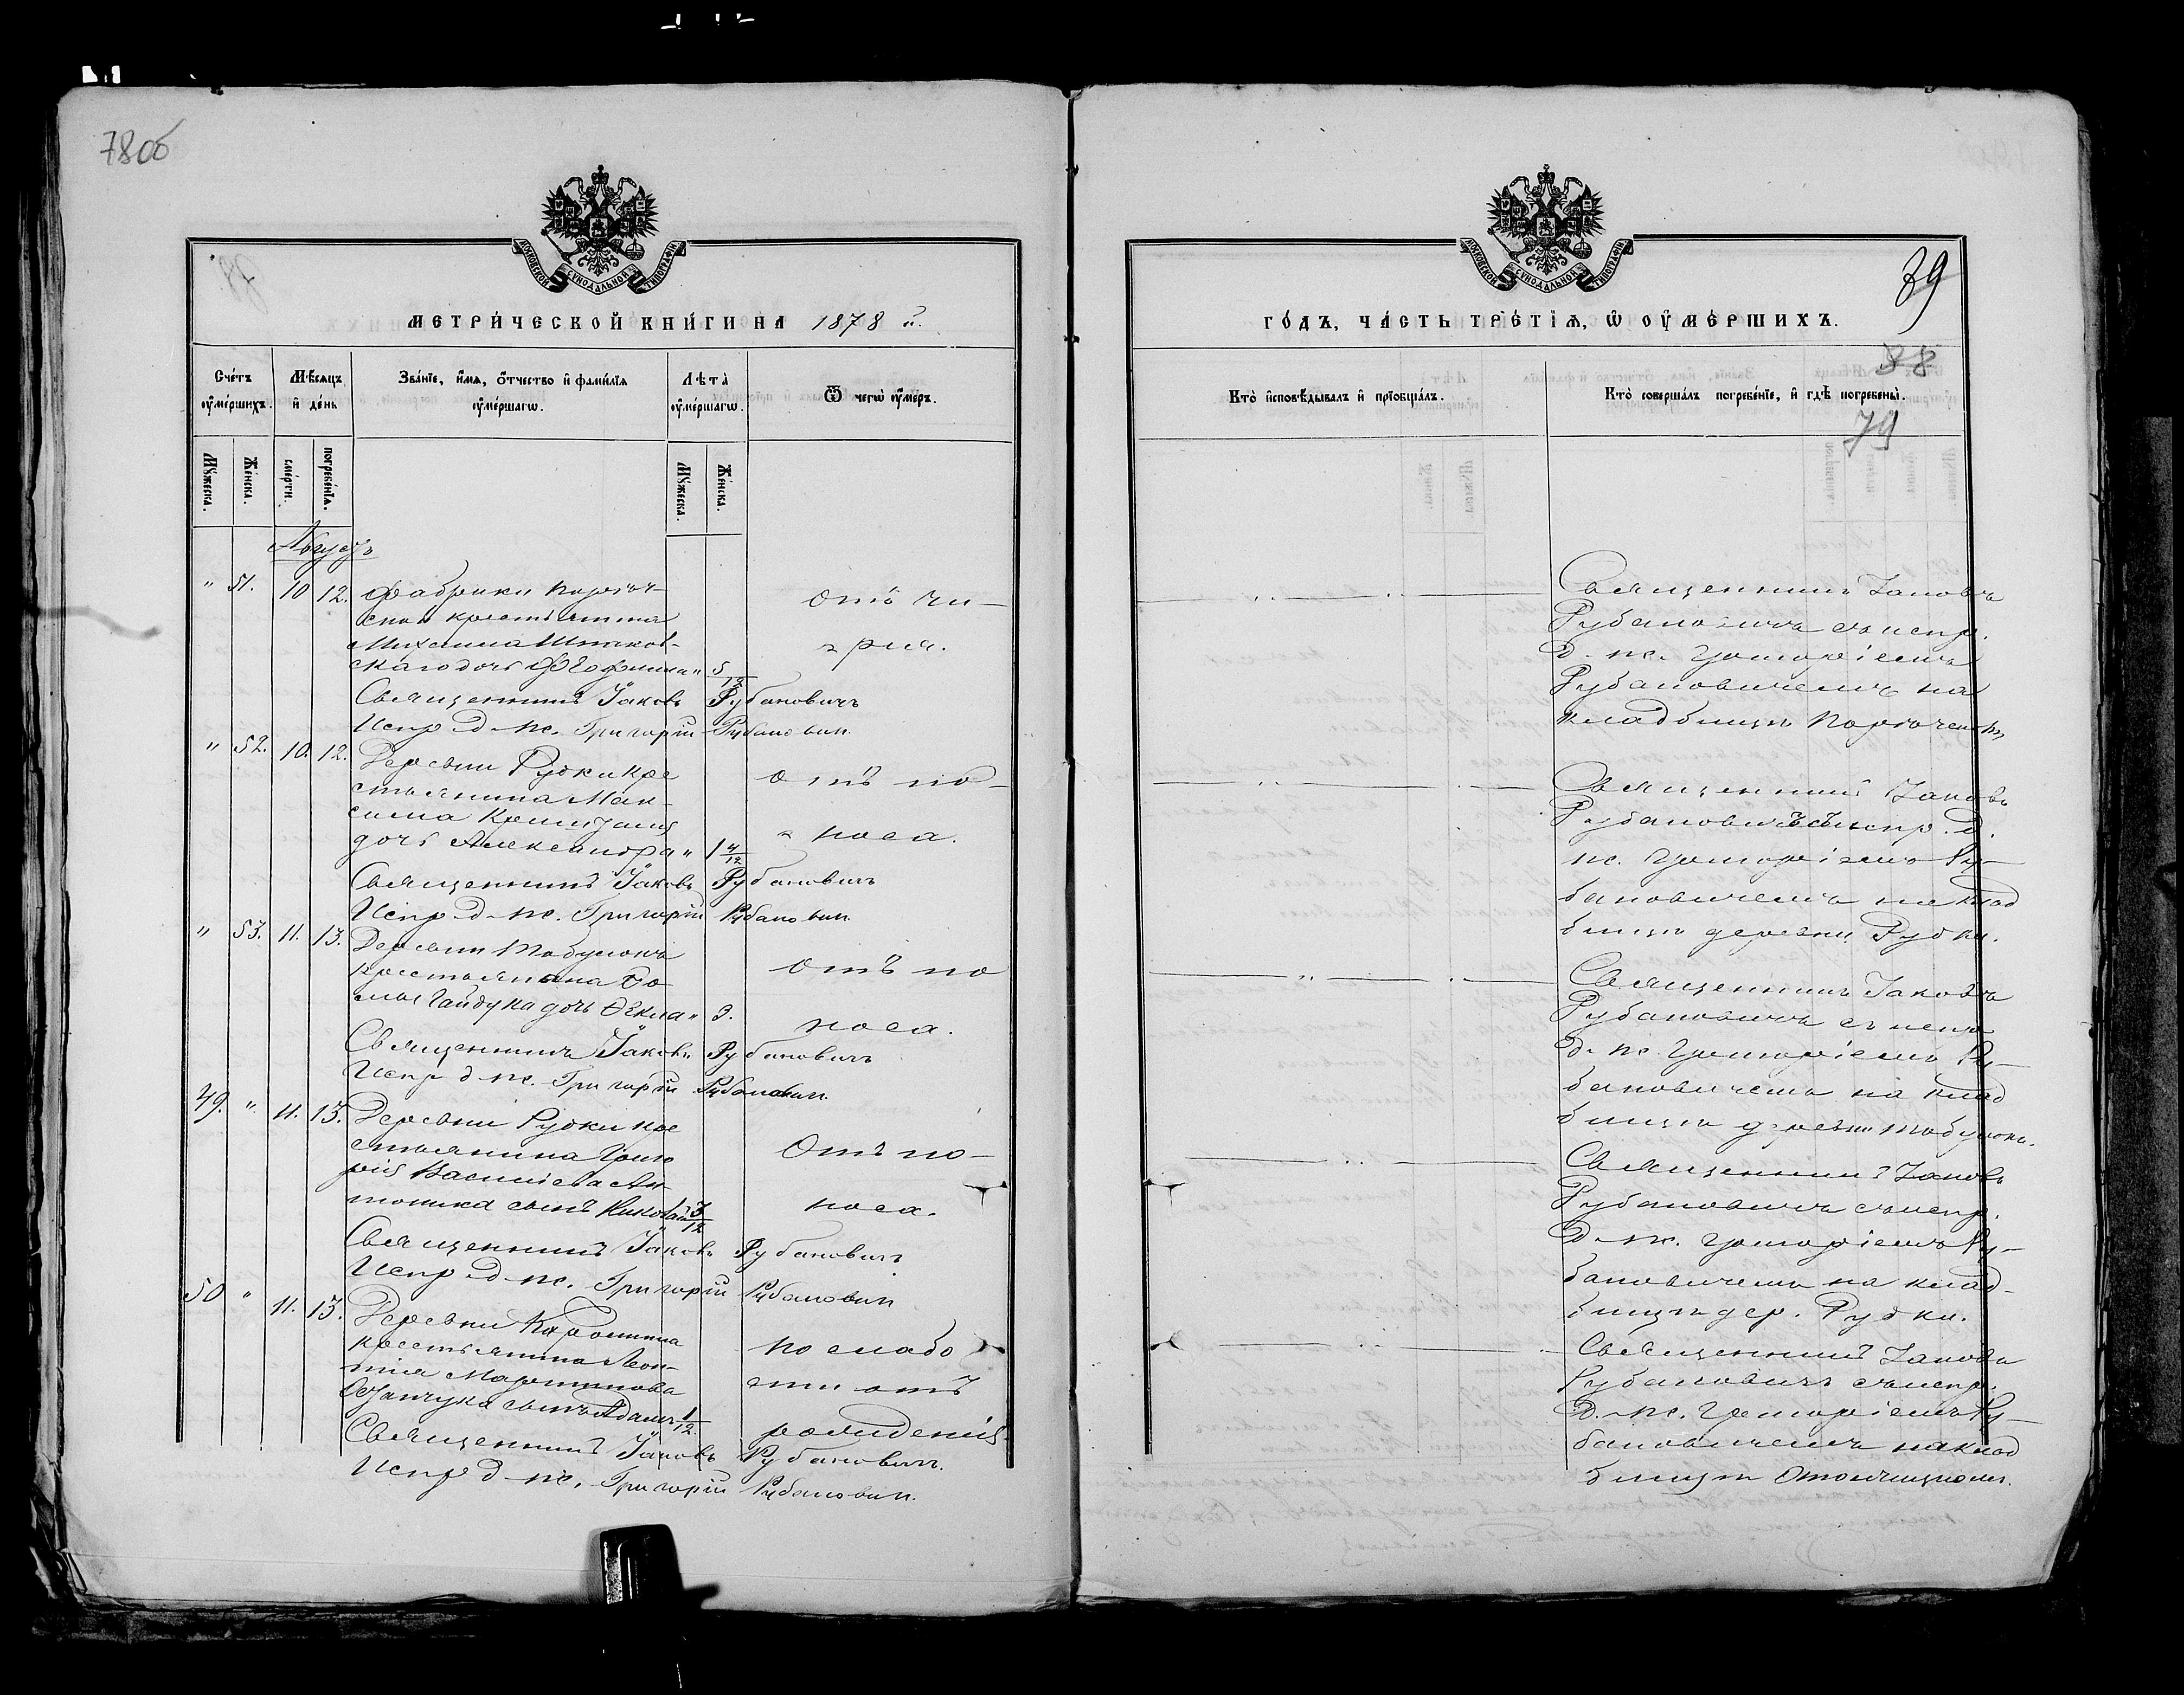 78об
МОСКОВСКОЙ СѴНОДАЛЬНОЙ ТИПОГРАФІИ
МЕТРИЧЕСКОЙ КНИГИ НА 1878 й.
Счетъ ѹмершихъ.
Мѣсяцъ и день
Званіе, имя, отчество и фамилія ѹмершагѡ.
Лѣта ѹмершагѡ.
Ѿ чегѡ ѹмеръ.
Мꙋжеска.
Женска.
смерти.
погребенія.
Мꙋжеска.
Женска.
Августъ
" 51. 10 12. Фабрики Порѣч-
ской крестьянина
Михаила
скаго дочь " 5/12
отъ чи-
рья.
Священникъ Іаковъ Рубановичъ
Испр д. пс. Григорій Рубанович.
" 52. 10. 12. Деревни Рудки кре
стьянина Мак-
сима
дочь Александра " 1 4/12
отъ по-
носа.
Священникъ Іаковъ Рубановичъ
Испр д. пс. Григорій Рубанович.
" 53. 11. 13. Деревни Табулокъ
крестьянина Ѳо
мы Гайдука дочь Ѳекла " 3.
отъ по
носа.
Священникъ Іаковъ Рубановичъ
Испр д. пс. Григорій Рубанович.
49. " 11. 13. Деревни Рудки кре
стьянина Григо
рія Васильева Ан-
тоника сынъ Николай 3/12
Отъ по-
носа.
Священникъ Іаковъ Рубановичъ
Испр д. пс. Григорій Рубанович
50 " 11. 13. Деревни
крестьянина Леон-
тія Мартинова
сынъ Адамъ 1/12
по слабо
сти отъ
рожденія.
Священникъ Іаковъ Рубановичъ.
Испр д. пс. Григорій Рубанович.
МОСКОВСКОЙ СѴНОДАЛЬНОЙ ТИПОГРАФІИ
39
ГОДЪ, ЧАСТЬ ТРЕТІЯ, Ѡ ОУМЕРШИХЪ.
38
Кто исповѣдывалъ и пріобщалъ.
Кто совершалъ погребеніе, и гдѣ погребены.
79
Священникъ Іаковъ
Рубановичъ съ испр.
д. пс. Григоріемъ
Рубановичемъ на
кладбищѣ
Священникъ Іаковъ
Рубановичъ съ испр. д.
пс. Григоріемъ Ру-
бановичемъ на клад
бищѣ деревни Рудки.
Священникъ Іаковъ
Рубановичъ съ испр
д. пс. Григоріемъ Ру-
бановичемъ на клад
бищѣ деревни Табулокъ.
Священникъ Іаковъ
Рубановичъ съ испр.
д. пс. Григоріемъ Ру-
бановичемъ на клад-
бищѣ дер. Рудки.
Священникъ Іаковъ
Рубановичъ съ испр.
д. пс. Григоріемъ Ру-
бановичемъ на клад
бищѣ